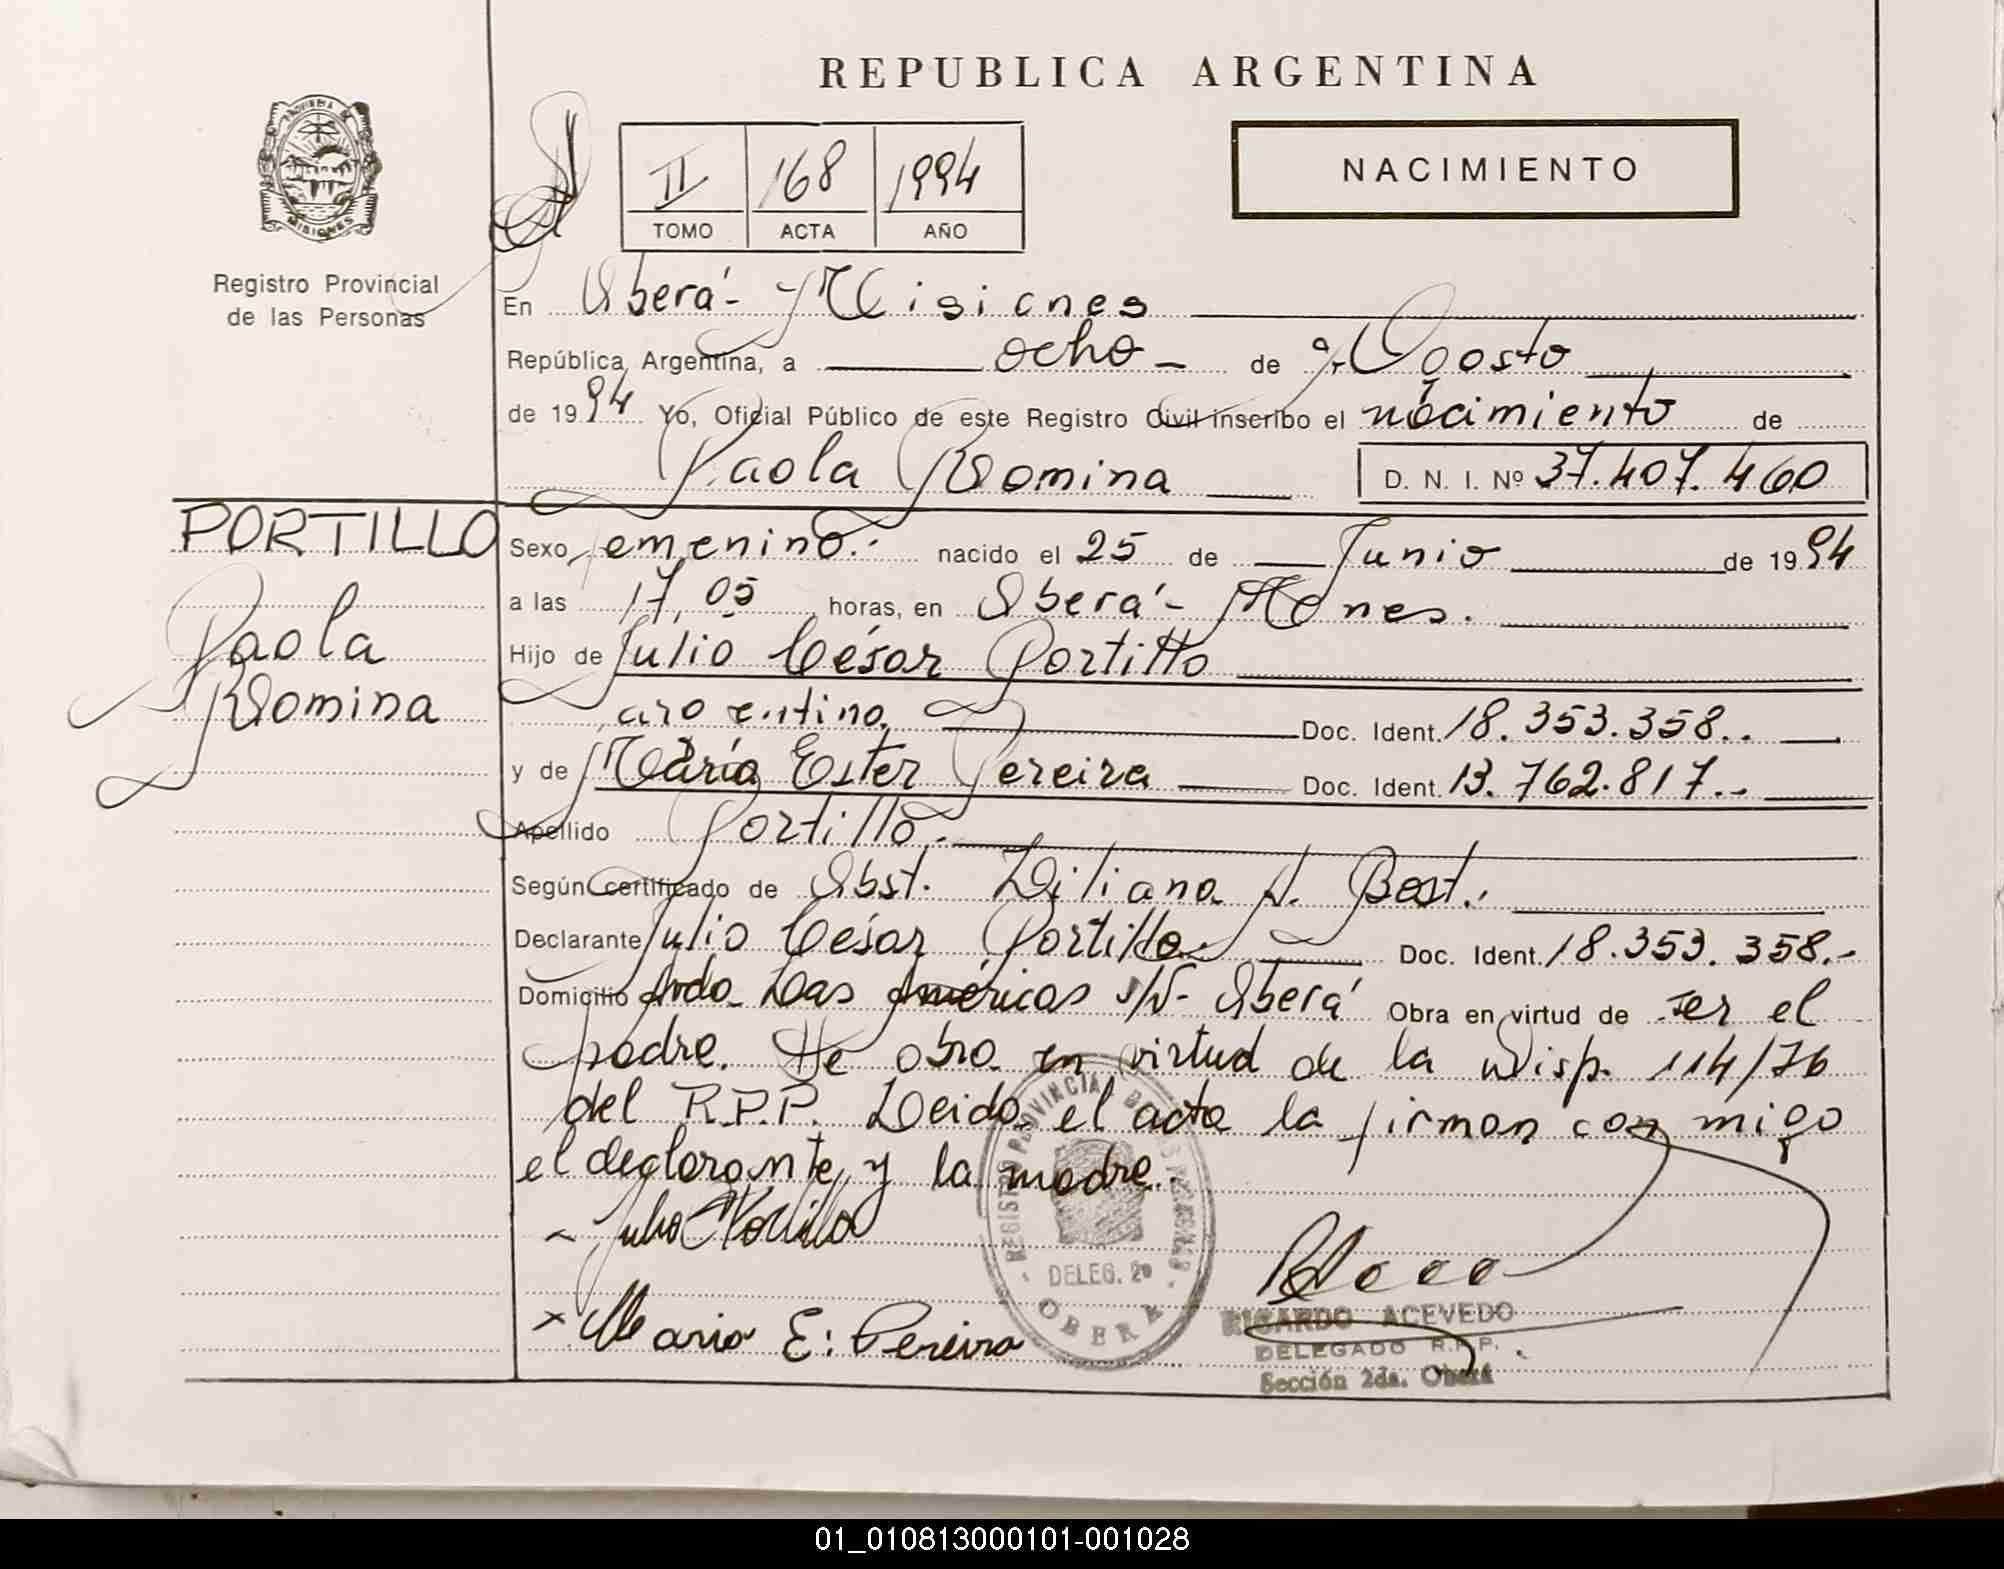 REPUBLICA ARGENTINA
PROVINCIA DE
MISIONES
Registro Provincial
de las Personas
II 168 1994
TOMO ACTA AÑO
NACIMIENTO
En Oberá - Misiones
República Argentina, a ocho - de Agosto
de 1994 Yo, Oficial Público de este Registro Civil inscribo el nacimiento de
Paola Romina D. N. I. Nº 37.407.460
PORTILLO
Paola
Romina
Sexo femenino.- nacido el 25 de Junio de 1994
a las 17,05 horas, en Oberá - Mnes.
Hijo de Julio César Portillo
argentino. Doc. Ident. 18.353.358..
y de María Ester Pereira Doc. Ident. 13.762.817.-
Apellido Portillo.-
Según certificado de Obst. Liliana A. Bast.
Declarante Julio César Portillo. Doc. Ident. 18.353.358.-
Domicilio Avda Las Américas S/N - Oberá Obra en virtud de ser el
padre. Se obra en virtud de la Disp. 114/76
del R.P.P. Leida el acta la firman con migo
el declarante y la madre.
Julio Portillo
x Maria E. Pereira
REGISTRO PROVINCIAL DE LAS PERSONAS
DELEG. 2ª
OBERA
RICARDO ACEVEDO
DELEGADO R.P.P.
Sección 2da. Oberá
01_010813000101-001028